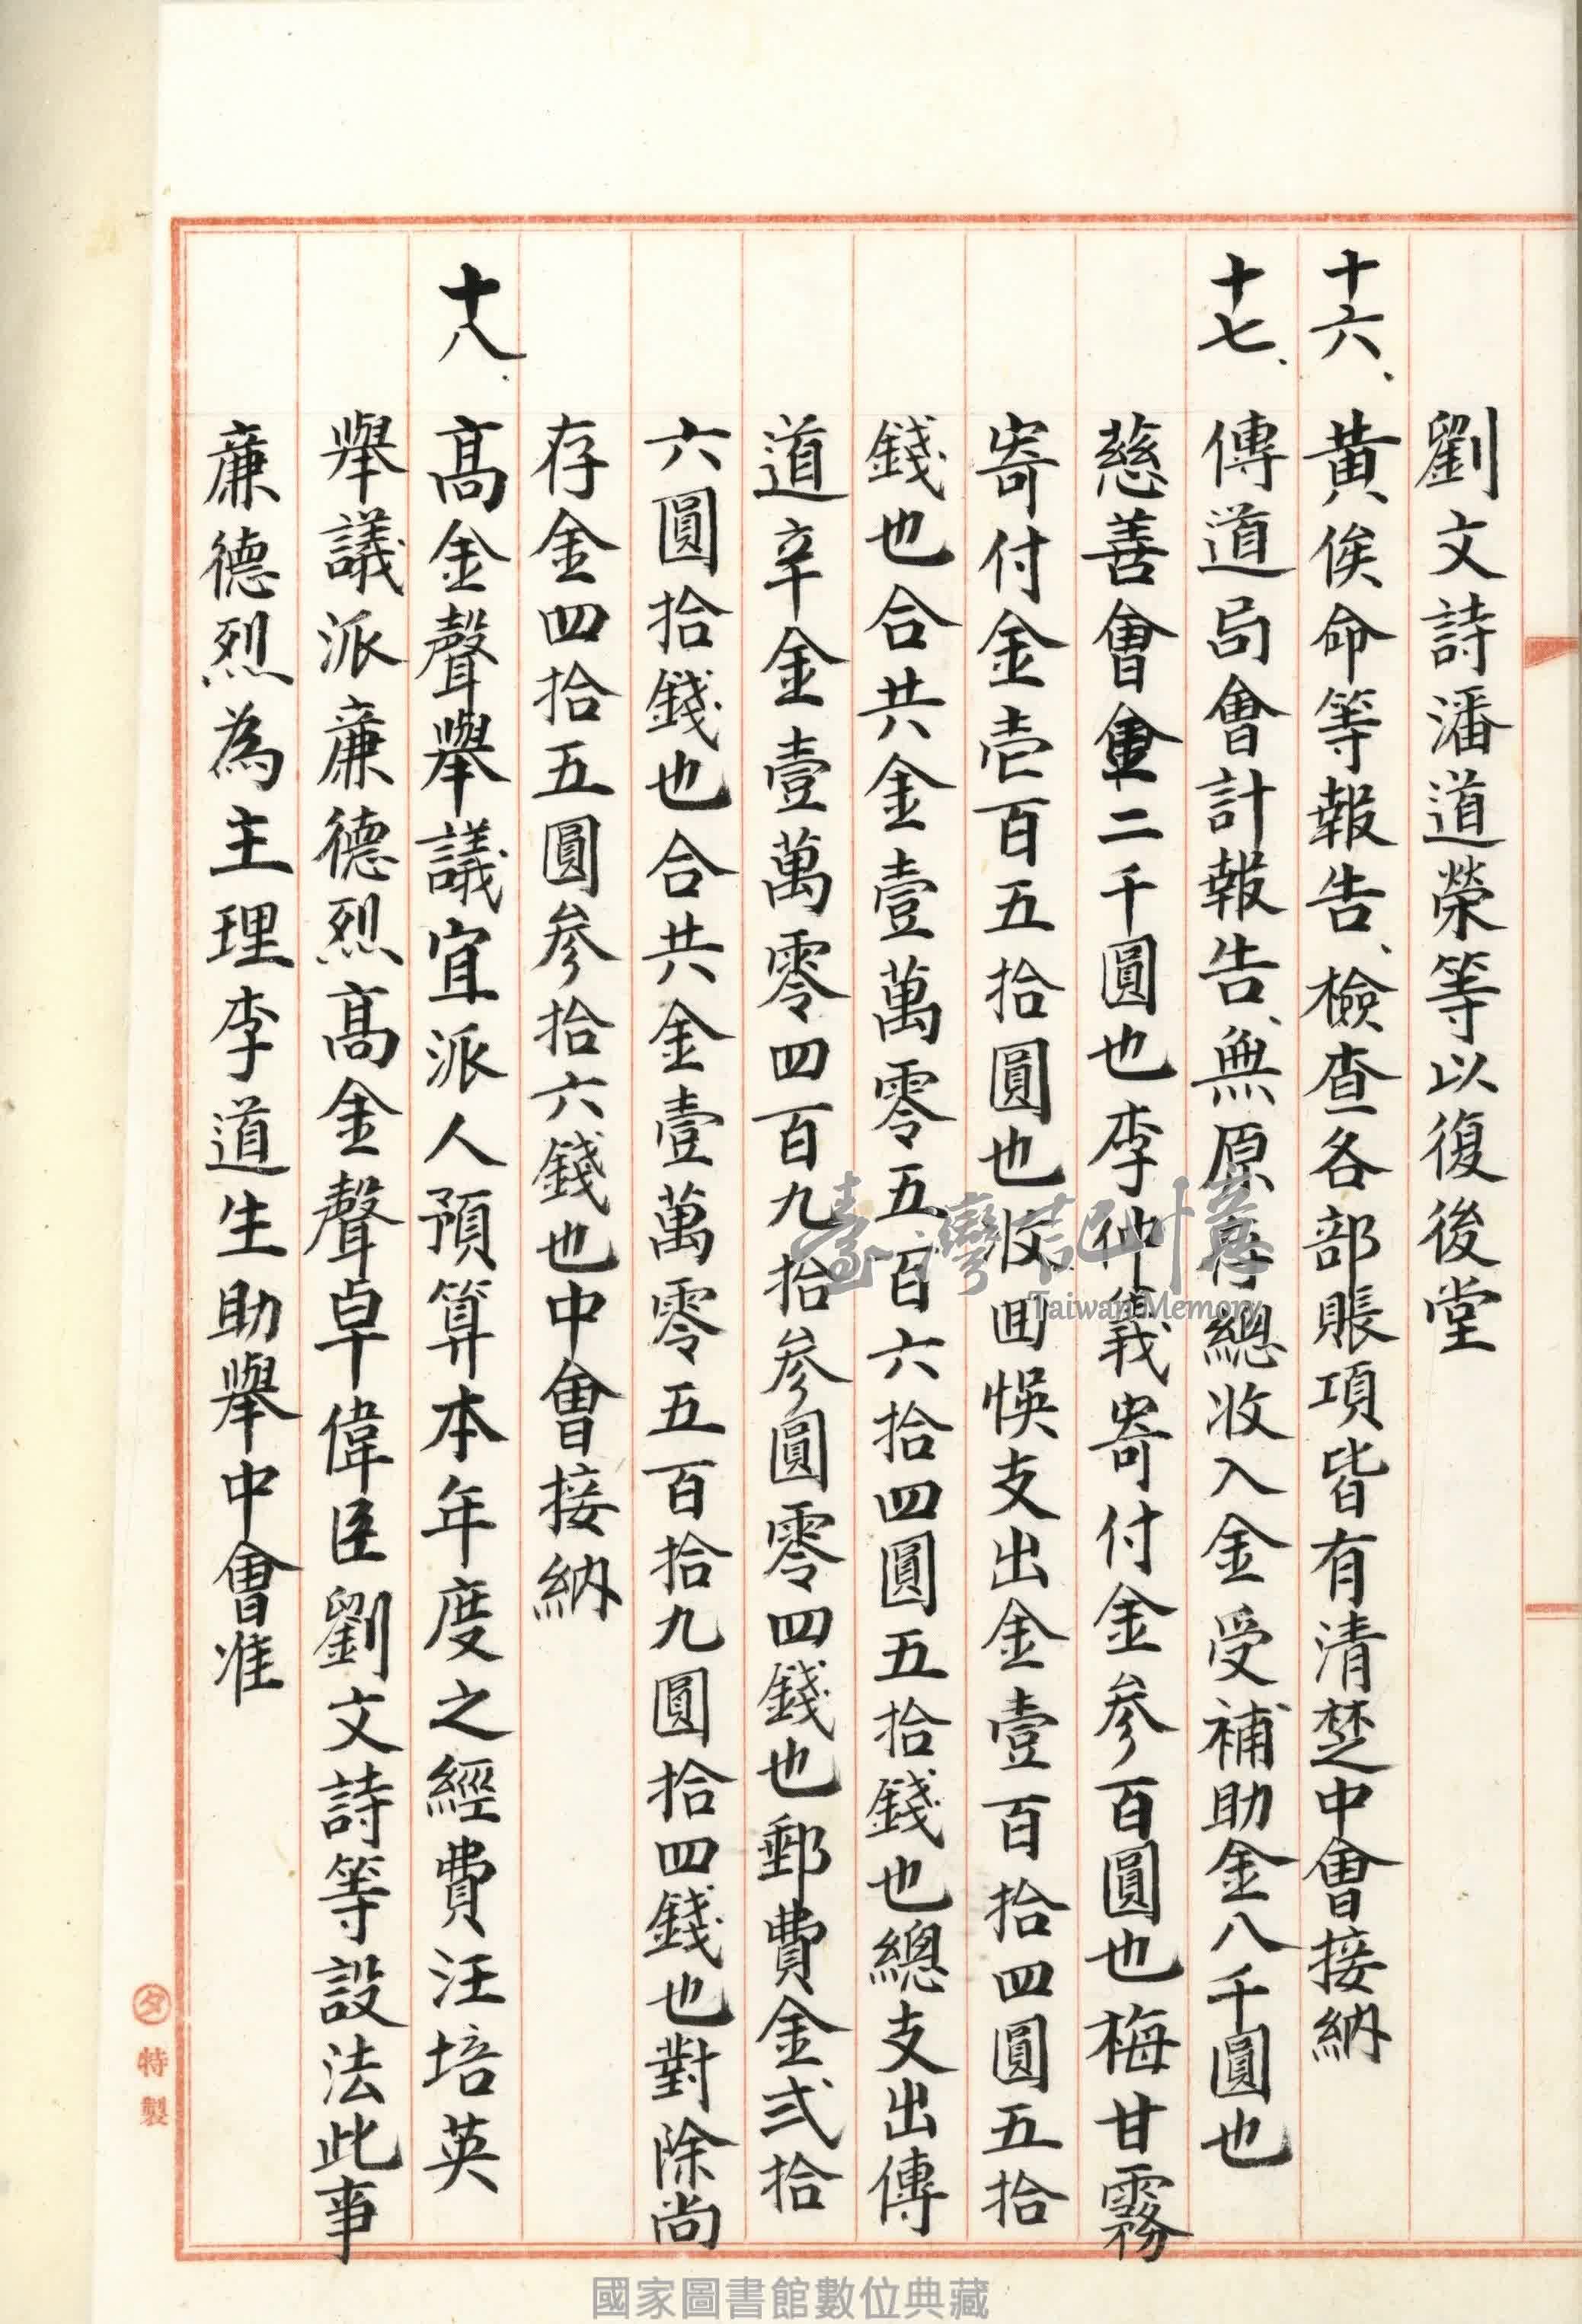 劉文詩潘道榮等以復後堂
十六、黄俟命等報告、檢查各部賬項皆有清楚中會接納
十七、傳道局會計報告、無原存總收入金受補助金八千圓也
慈善會金二千圓也李仲義寄付金参百圓也梅甘霧
寄付金壱百五拾圓也收囬悞支出金壹百拾四圓五拾
錢也合共金壹萬零五百六拾四圓五拾錢也總支出傳
道辛金壹萬零四百九拾参圓零四錢也郵費金弍拾
六圓拾錢也合共金壹萬零五百拾九圓拾四錢也對除尚
存金四拾五圓参拾六錢也中會接納
十八、高金聲舉議宜派人預算本年度之經費汪培英
舉議派廉德烈高金聲卓偉臣劉文詩等設法此事
廉德烈為主理李道生助舉中會准
タ特製
臺灣記憶
Taiwan Memory
國家圖書館數位典藏